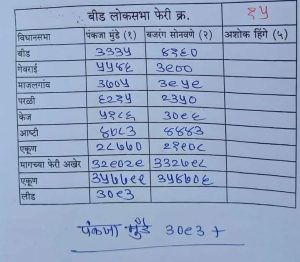 बीड लोकसभा फेरी क्र. १५
विधानसभा पंकजा मुंडे (१) बजरंग सोनवणे (२) अशोक हिंगे (५)
बीड ३३३५ ४१६०
गेवराई ५५४६ ३९००
माजलगांव ३७०५ ३९५९
परळी ६२३५ २३५०
केज ५१८६ ३०९६
आष्टी ४७८३ ४४४३
एकूण २८७७० २१९०८
मागच्या फेरी अखेर ३२९०२९ ३३२७९८
एकूण ३५७७९९ ३५४७०६
लीड ३०९३
पंकजा मुंडे ३०९३ +